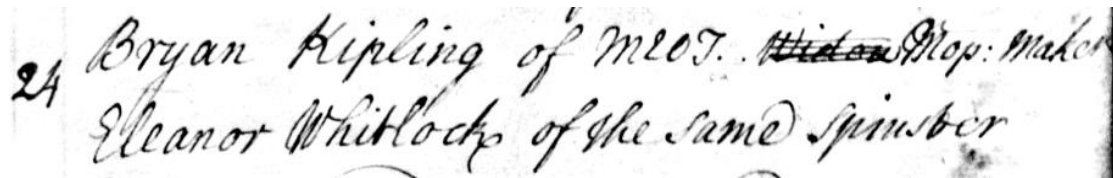 Bryan Kipling of MEOT. Widow Mop: Maker
24
Eleanor Whitlock of the same Spinster